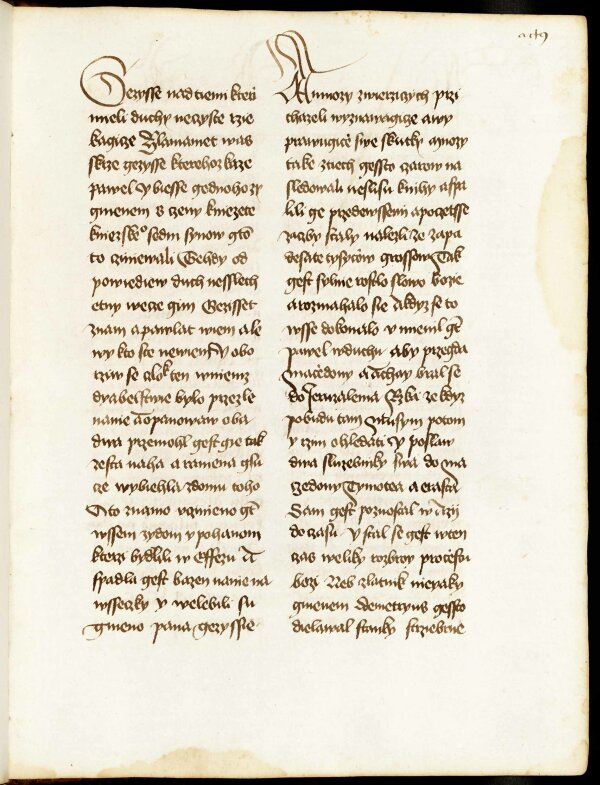 Gezysse nad tiemi kteři
mieli duchy neczyste rzie
kagicze Zlamamet was
skrze gezysse kterehoz kaze
pawel Y biesse gednoho zy
gmenem s czewy kniezete
kniezske° sedm synow gto
to czinievali Tehdy od
powiediew duch nesslech
etny wecze gim Gezisset
znam a pawlat wiem ale
wy kto ste newiem Y obo
rziw se czlok ten w niemz
dyabelstwie bylo przezle
na nie a opanowaw oba
dwa przemohl gest gie tak
zesta naha a ranena glu
cze wybiehla z domu toho
A to znamo vczineno ge
wssem zydom y pohanom
kterzi bydlili w Effezu A
spadla gest bazen na nie na
wsseczky y welebili su
gmeno pana gezyssie
A mnozy z wierzicych przi
chazeli wyznawagicze a wy
prawugice swe skutky a mnozy
take z tiech gessto czarow na
sledowali nesli su knihy a spa
lili ge przedewssemi a pocztsse
zaczby staly nalezli ze za pa
desate tysyczow grossow Tak
gest sylnie rostlo slowo bozie
a rozmahalo sie A kdyz se to
wsse dokonalo v mienil ge
pawel w duchu aby przegda
maczedony a achay bral se
do Jeruzalema Rzka ze kdyz
pobudu tam Musym potom
y rzim ohledati Y poslaw
dwa sluzebniky swa do ma
czedony Tymotea a erasta
Sam gest pozuostal w Azij
do czasu Y stal se gest w ten
czas weliky rozbroy pro cestu
bozi Neb zlatnik nieyaky
gmenem demetryus gessto
dielawal stanky strziebrne